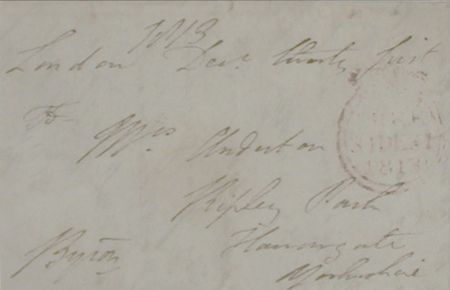 1813
London Decr. thirty first
To
Mrs Anderton
Ripley Park
Harrowgate
Yorkshire
Byron
1813